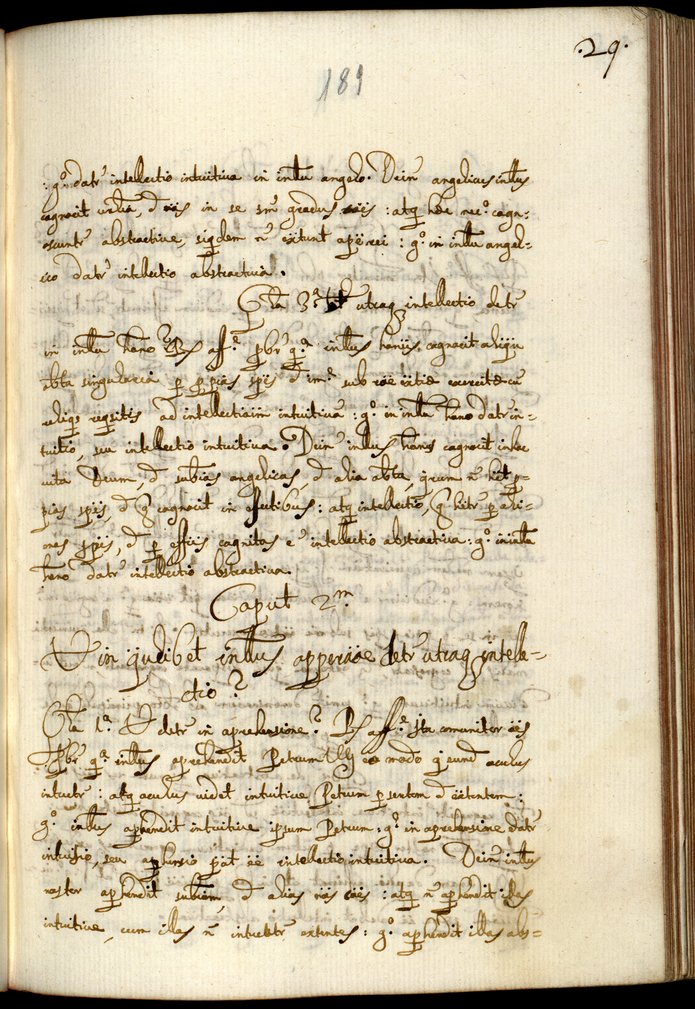 .29.
189
: g.º datr intellectio intuitiva in intllu angelo. Dein angelicus intllus
cognoscit in se sm gradus : atq hae cogn:
oscuntr abstractive, siqdem n extunt a pe rei : gº in intllu angel=
ico datr intellectio abstractiva.
Qta 3ª utraq intellectio detr
in intllu hano? Rs affe pbr qª intllus hanus cognoscit aliqu
abta singularia p ppias spes sub exercite cu
reliqs reqsitis ad intellectionem intuitiva : gº in intllu hano datr in=
tuitio, seu intellectio intuitiva. Dein intllus hanus cognoscit in hac
vita Deum, d subias angelicas, d alia abta, qrum n het p=
pias spes, d q cognoscit in effectibus : atq intellectio, q hetr p ali=
enas spes, d p effus cognitos e intellectio abstractiva : gº in intllu
hano datr intellectio abstractiva.
Caput 2.m
V in qudibet intllus opperaoe detr utraq intelle=
ctio?
Qta 1ª V detr in aprehensione? Rs affe Ita comuniter oes
Pbr qª intllus aprehendit Petrum eo modo q eund oculus
intuetr : atq oculus videt intuitive Petrum psentem d extentem :
gº intllus aphendit intuitive ipsum Petrum : gº in aprehensione datr
intuitio, seu aphensio pat ee intellectio intuitiva. Dein intllus
noster aphendit subiam, d alias : atq n aphendit illas
intuitive, cum illas n intuetr extentes : gº aphendit illas abs=